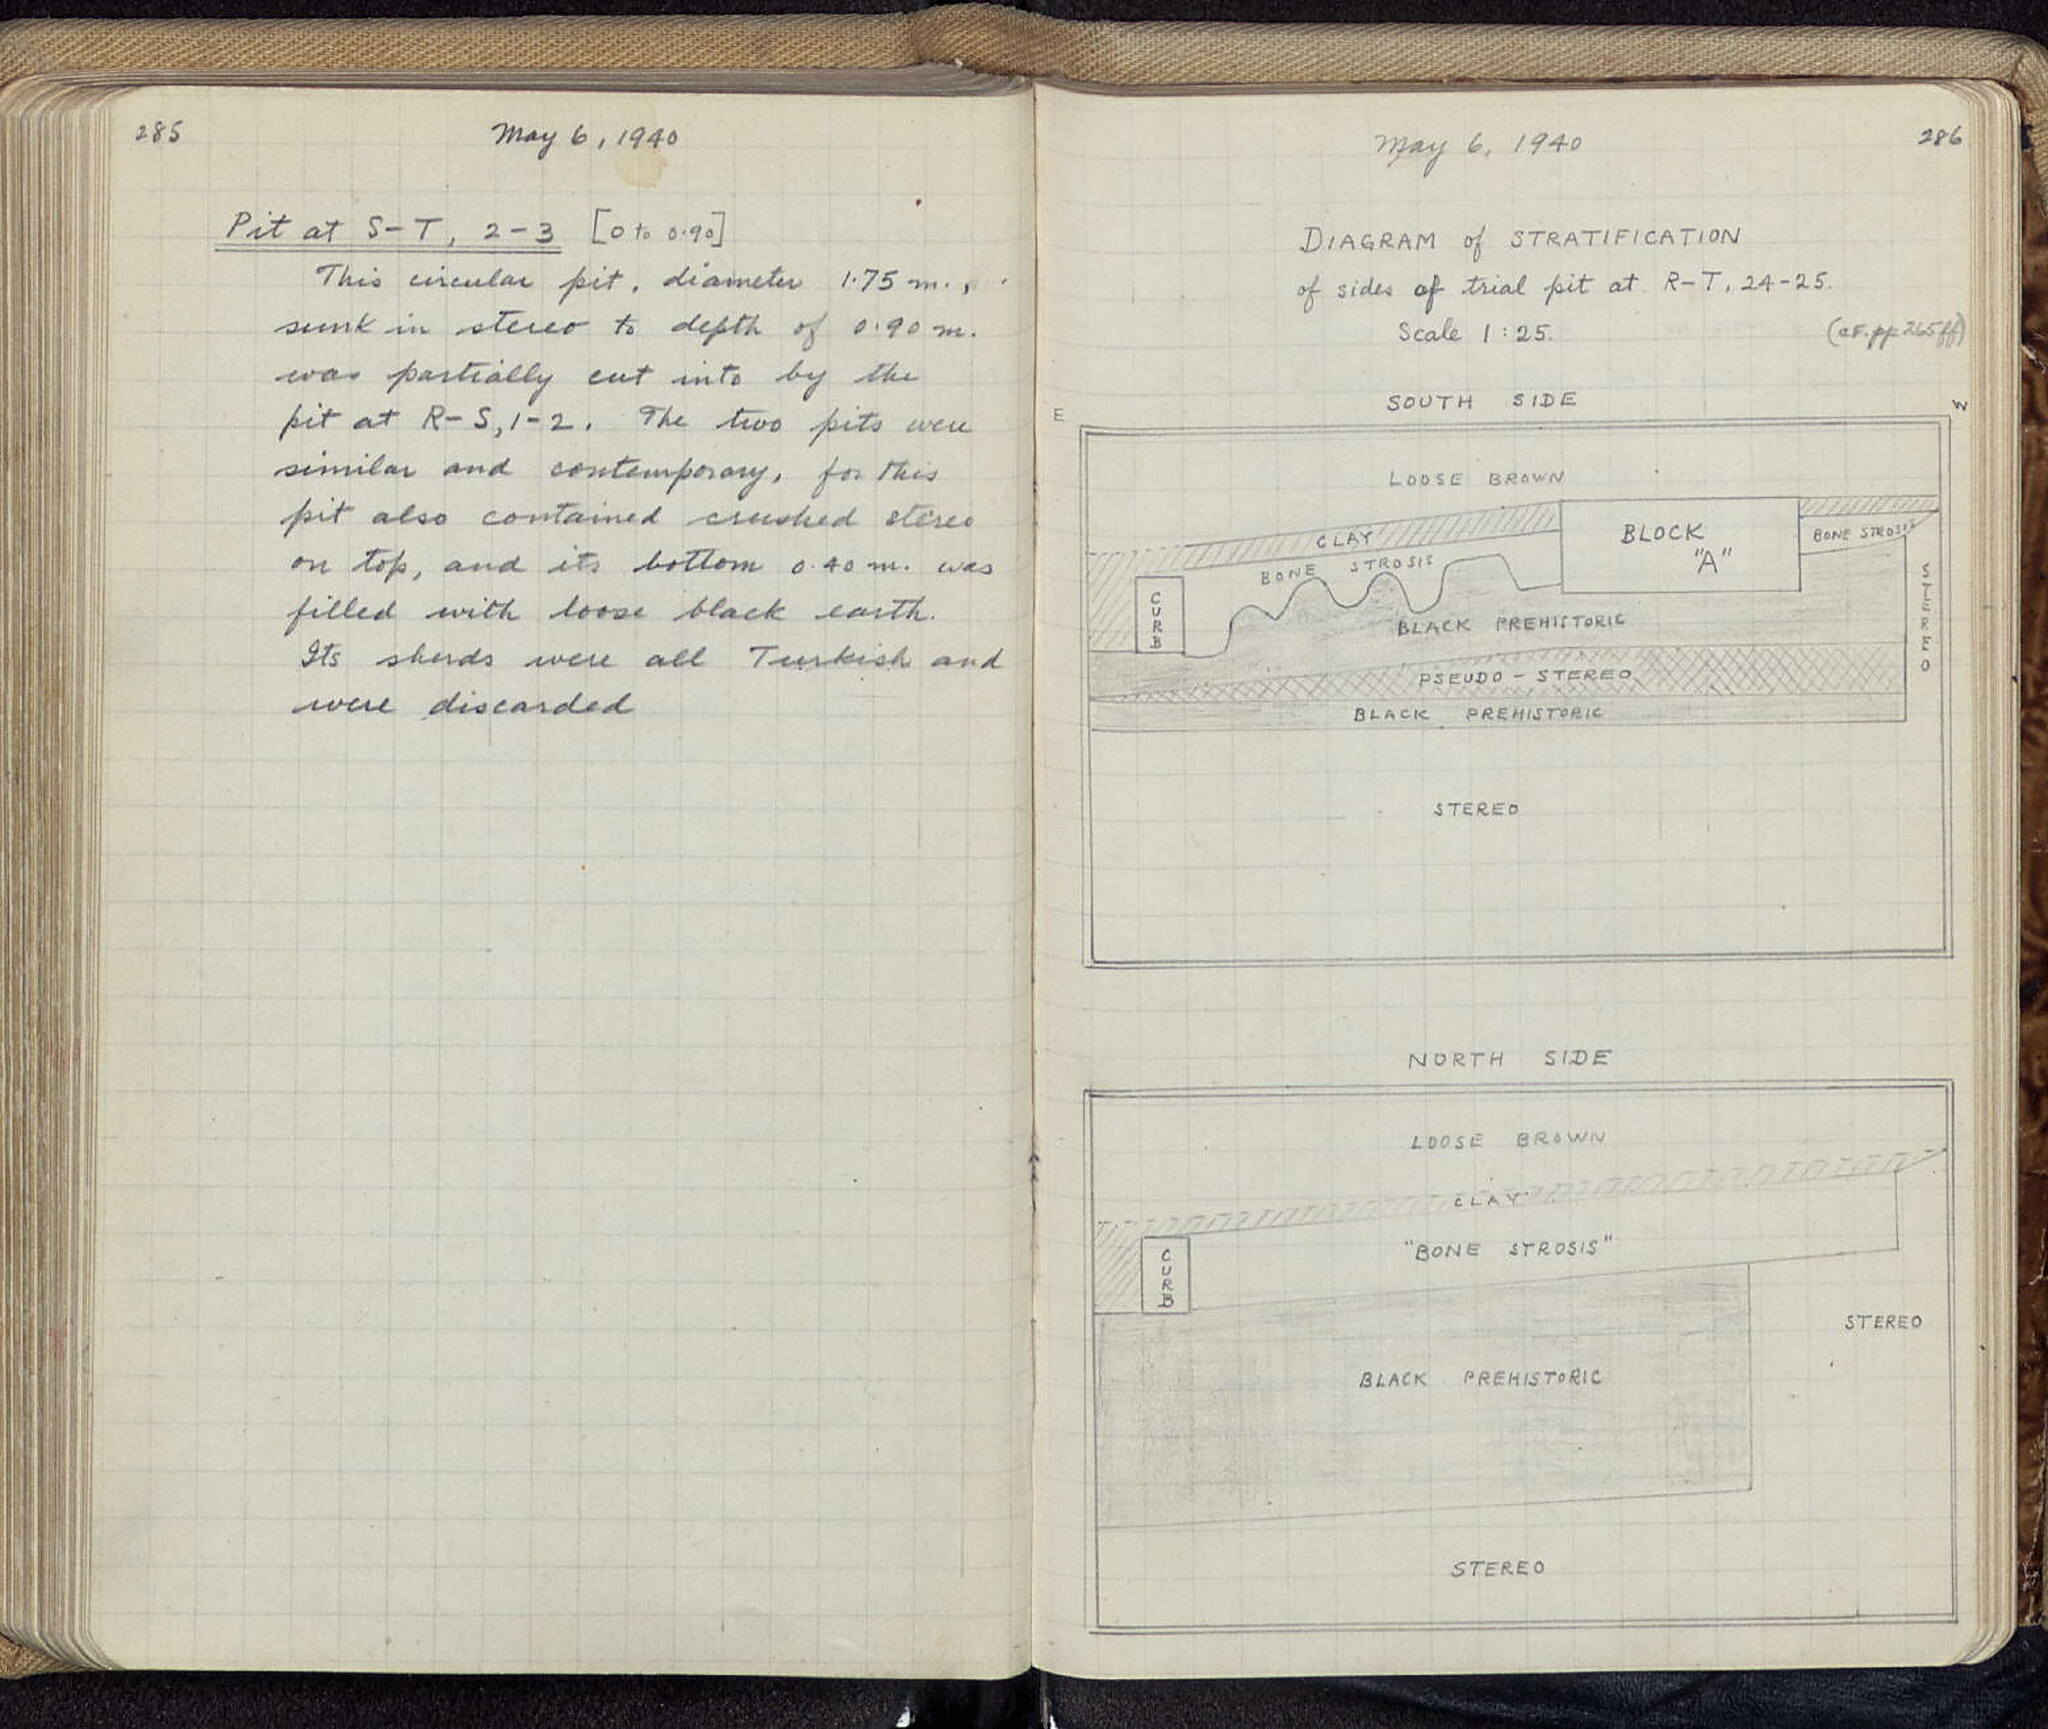 285
May 6, 1940
Pit at S-T, 2-3 [0 to 0.90]
This circular pit, diameter 1.75 m.,
sunk in stereo to depth of 0.90 m.
was partially cut into by the
pit at R-S, 1-2. The two pits were
similar and contemporary, for this
pit also contained crushed stereo
on top, and its bottom 0.40 m. was
filled with loose black earth.
Its sherds were all Turkish and
were discarded
May 6, 1940
286
DIAGRAM of STRATIFICATION
of sides of trial pit at R-T, 24-25.
Scale 1:25.
(cf. pp 265ff)
SOUTH SIDE
E
W
LOOSE BROWN
CLAY
BLOCK
"A"
BONE STROSIS
BONE STROSIS
CURB
BLACK PREHISTORIC
STEREO
PSEUDO-STEREO
BLACK PREHISTORIC
STEREO
NORTH SIDE
LOOSE BROWN
CLAY
"BONE STROSIS"
CURB
STEREO
BLACK PREHISTORIC
STEREO